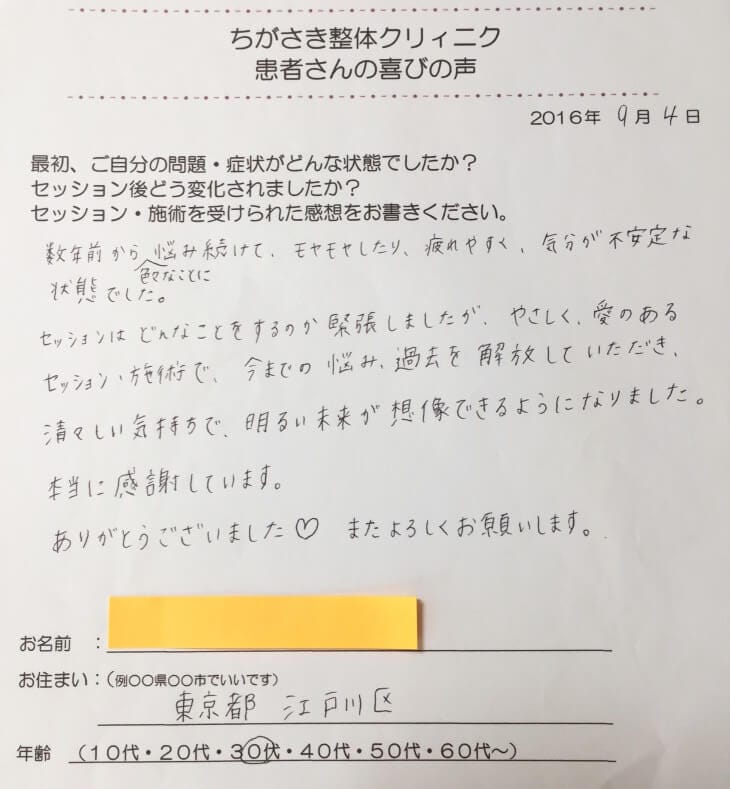 ちがさき整体クリィニク
患者さんの喜びの声
2016年 9月 4日
最初、ご自分の問題・症状がどんな状態でしたか？
セッション後どう変化されましたか？
セッション・施術を受けられた感想をお書きください。
数年前から 悩み続けて、モヤモヤしたり、疲れやすく、気分が不安定な
色々なことに
状態でした。
セッションは どんなことをするのか 緊張しましたが、やさしく、愛のある
セッション・施術で、今までの 悩み、過去を 解放していただき、
清々しい気持ちで、明るい未来が 想像できるようになりました。
本当に感謝しています。
ありがとうございました♡ またよろしくお願いします。
お名前 ：
お住まい：(例〇〇県〇〇市でいいです)
東京都 江戸川区
年齢 （10代・20代・30代・40代・50代・60代～）